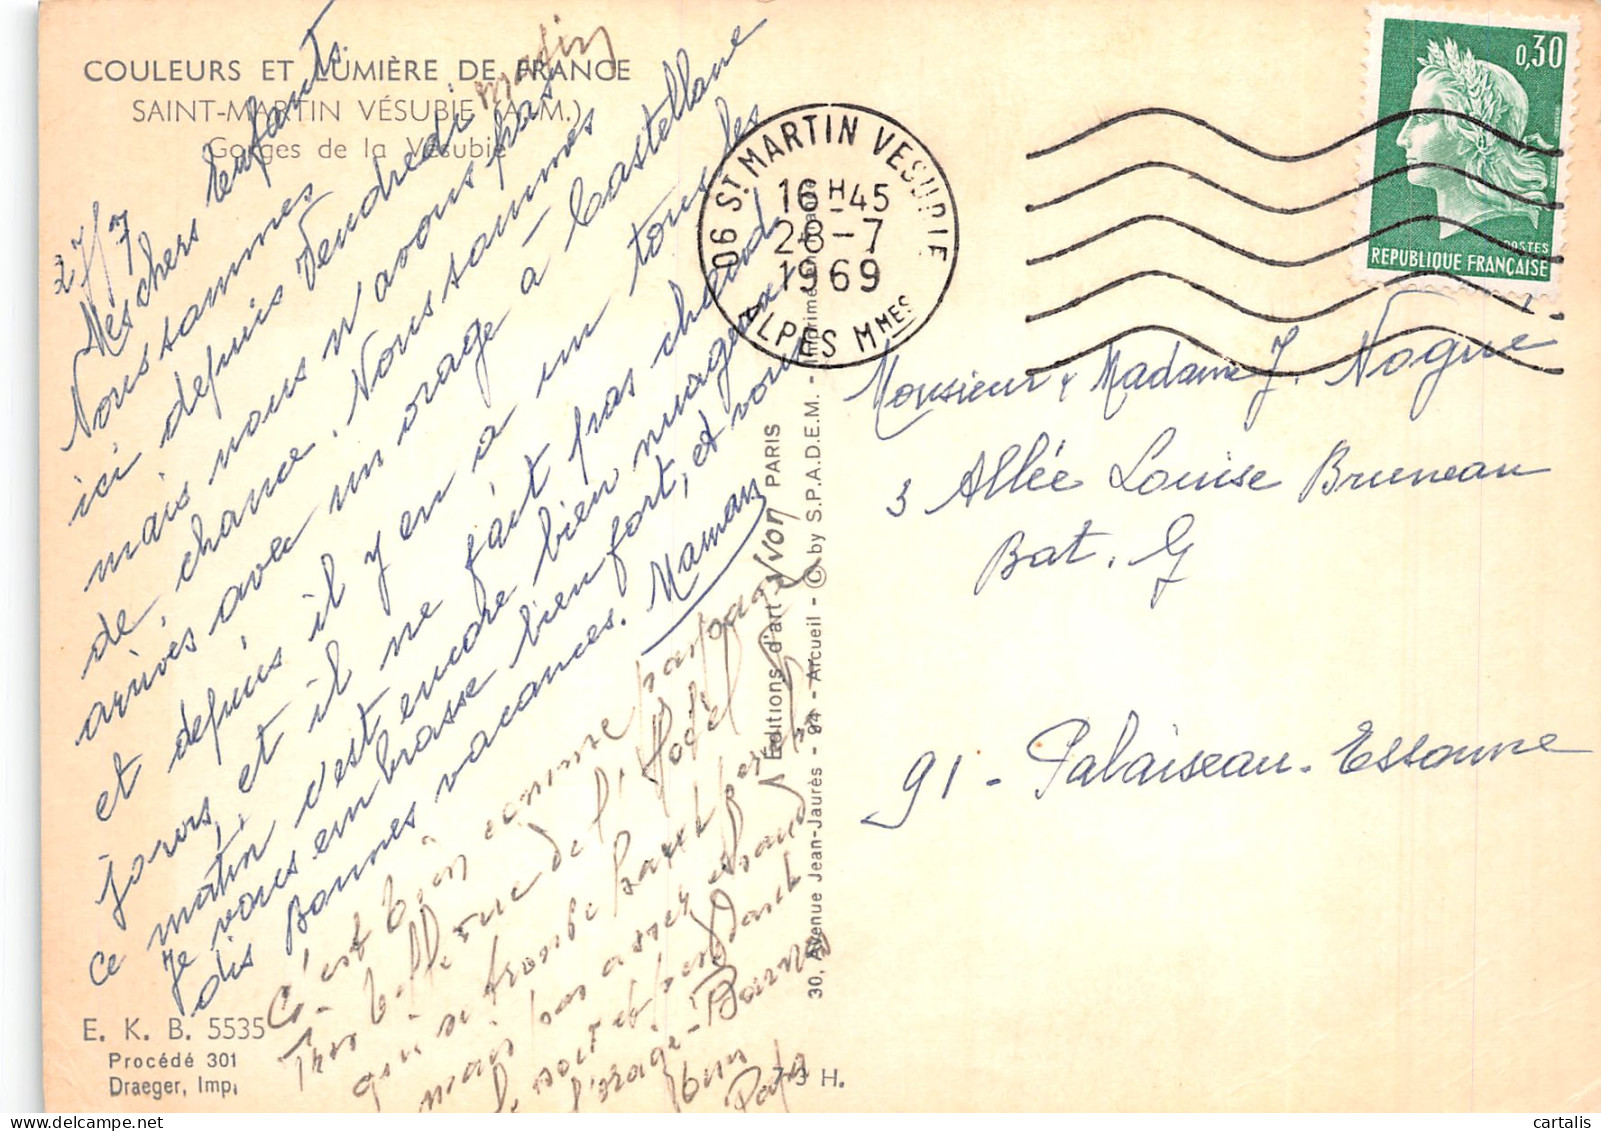 COULEURS ET LUMIÈRE DE FRANCE
SAINT-MARTIN VÉSUBIE (A.-M.)
Gorges de la Vésubie
27/7
Mes chers Enfants
Nous sommes
ici depuis Vendredi matin
mais nous n'avons pas
de chance. Nous sommes
arrivés avec un orage à Castellane
et depuis il y en a un tous les
jours, et il ne fait pas chaud
ce matin, c'est encore bien nuageux
Je vous embrasse bien fort, et vous
dis Bonnes vacances. Maman
C'est bien comme paysage
Très belle vue de l'Hôtel
qui se trouve
mais pas assez chaud
le soir et pendant
l'orage - Bonnes
Papa
E. K. B. 5535
Procédé 301
Draeger, Imp.
73 H.
Editions d'art YVON PARIS
30, Avenue Jean-Jaurès - 94 - Arcueil - © by S.P.A.D.E.M. - Imprimé
06 ST MARTIN VESUBIE
16H45
28-7
1969
ALPES MMES
0,30
POSTES
REPUBLIQUE FRANÇAISE
Monsieur & Madame J. Nogue
3 Allée Louise Bruneau
Bat. G
91 - Palaiseau. Essonne
cartalis